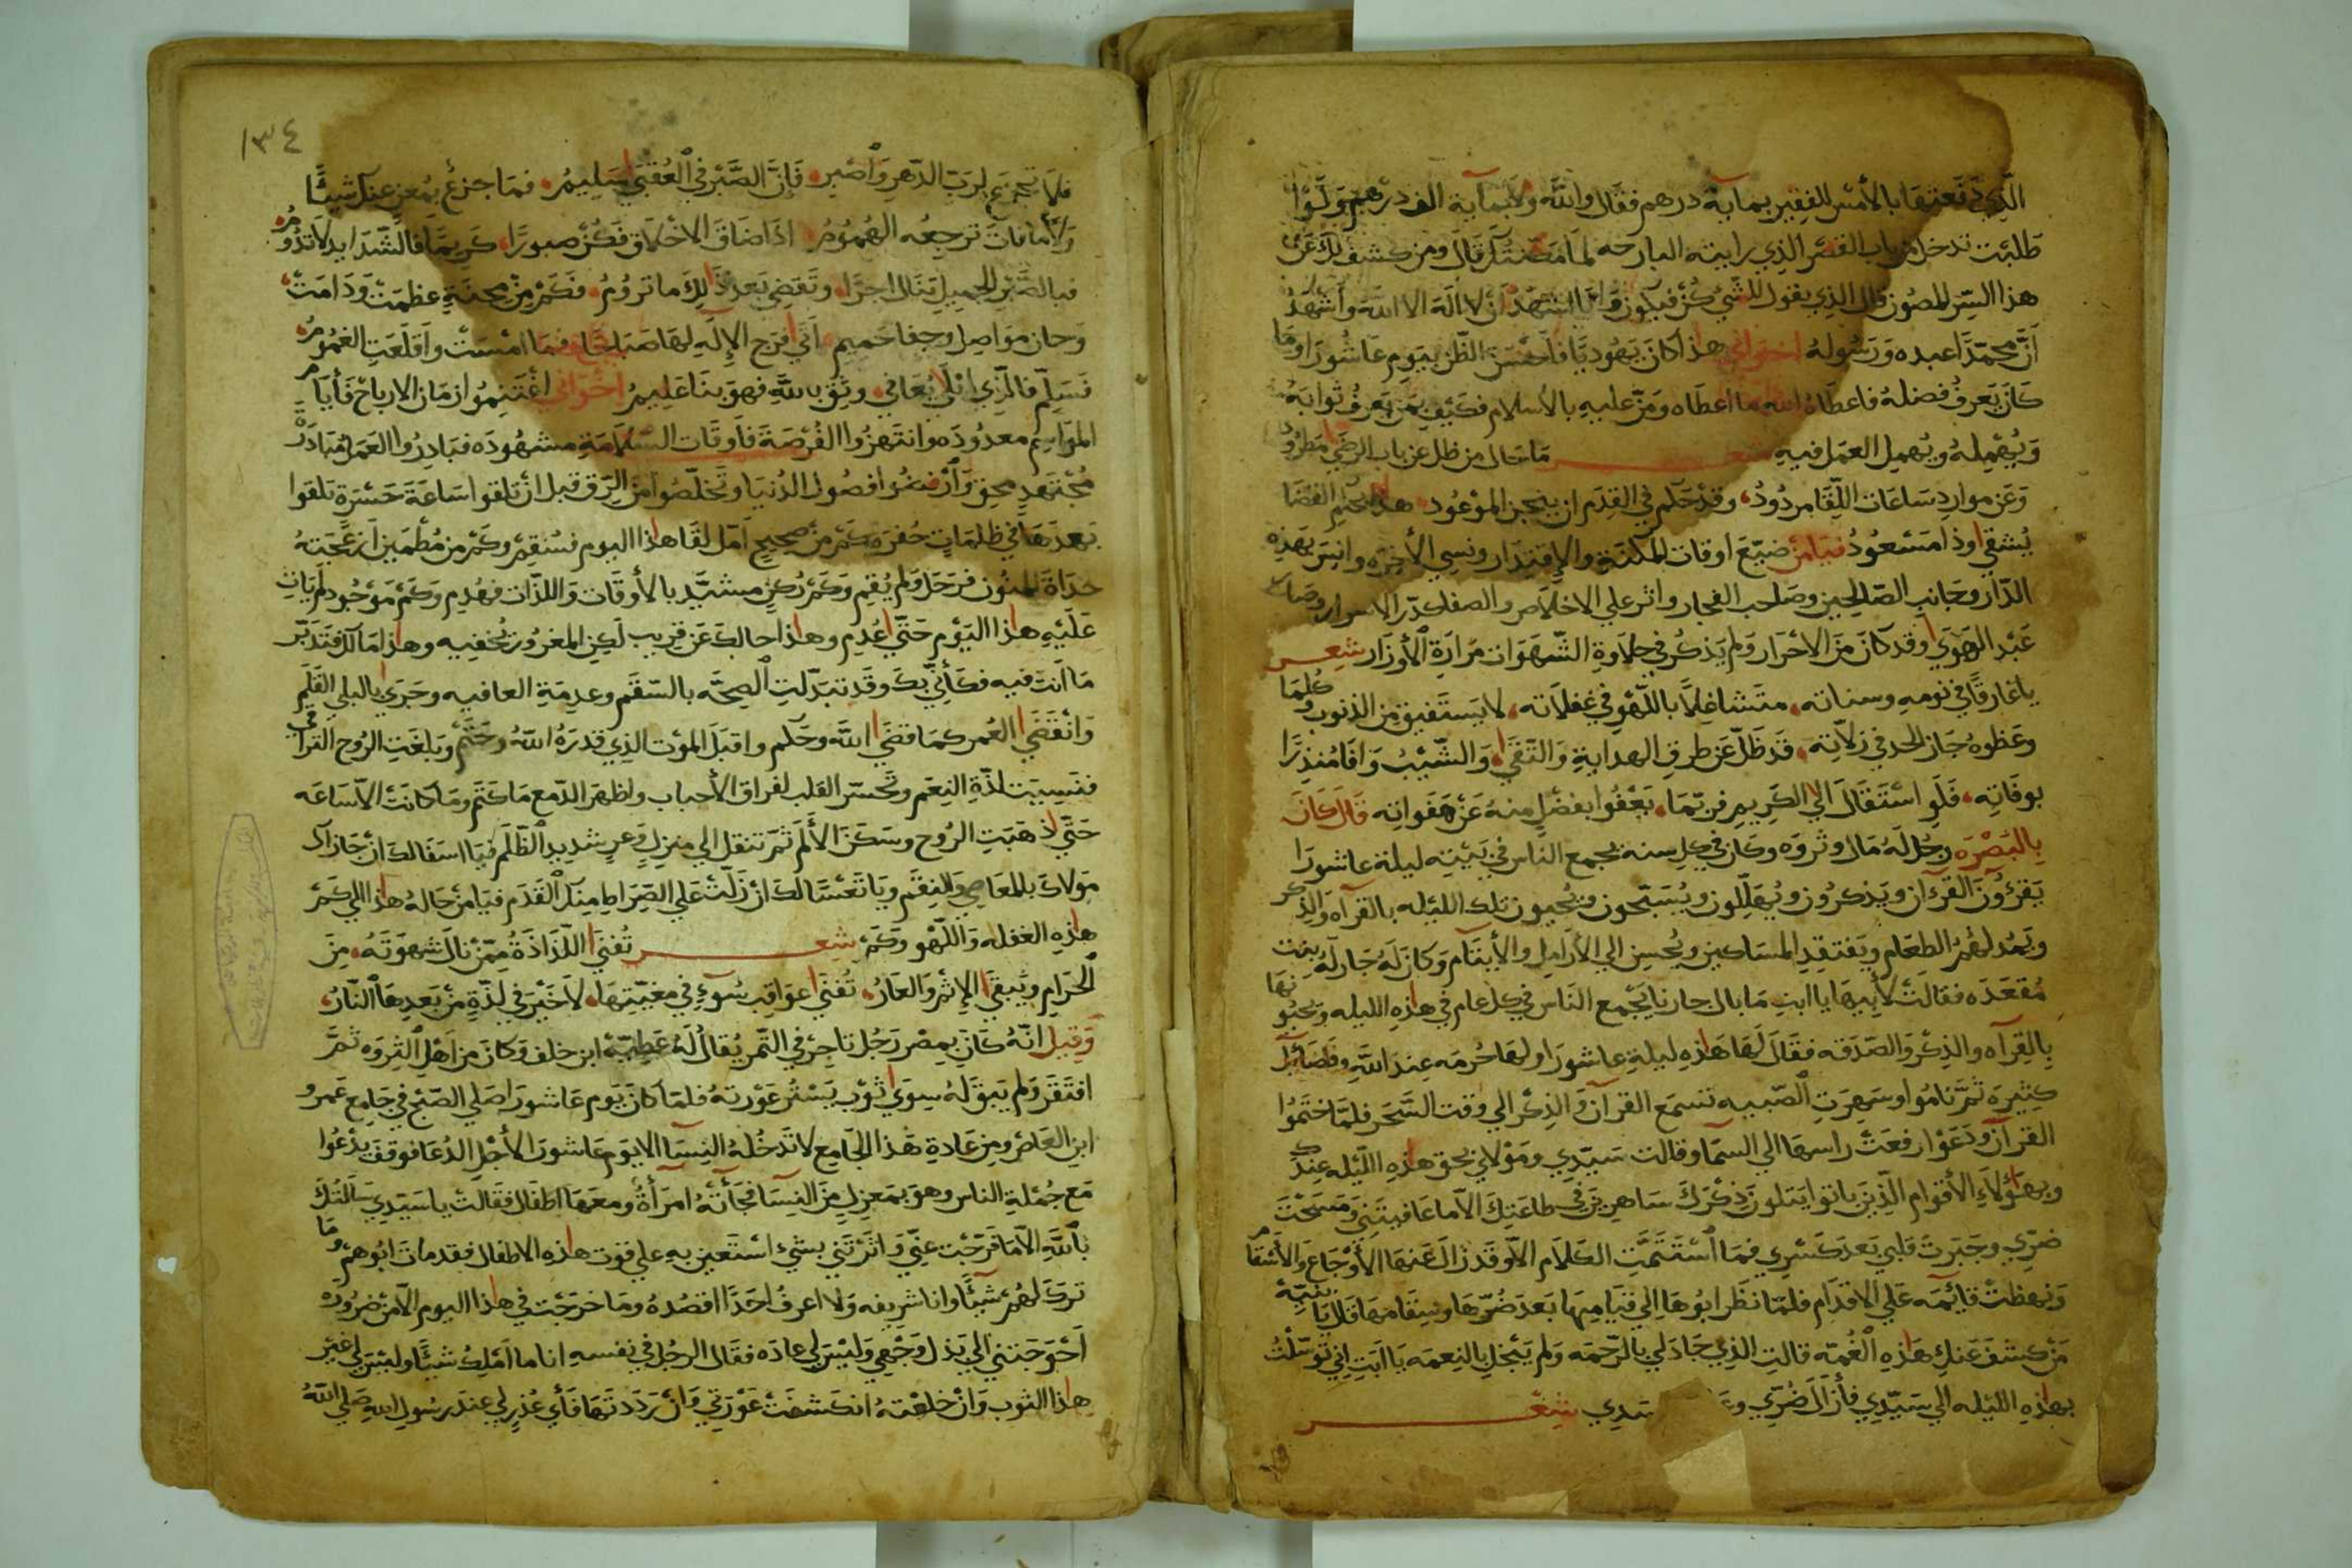 الَّذِي دَفَعتهَا بالأمْسِ للفقِير بمايَة درهم فقَالَ واللَّه ولَا بمايَة الف درهمٍ وَلَوْا
طلبْت تدخل من باب القصْر الذِي رايته البارحه لما مكّنتك قال ومن كشف لك عَنْ
هذا السِّر المصُون قال الذِي يقول للشَّيْ كُنْ فيَكون وَانَا اشهَدُ انْ لا الَهَ الا اللَّه وَأَشْهَدُ
اَنَّ محمّدًا عبده وَرَسُولهُ اخوَاني هذا كانَ يَهُوديَّا فاحْسَن الظّن بيَوم عَاشُورَا ومَا
كَانَ يَعرفُ فضلهُ فاعطَاهُ اللَّه ما اعطَاه وَمَنّ عليهِ بالأسلام فكَيْف بمَن يَعرفُ ثوابَهُ
وَيُهْمِلهُ ويُهمِل العَمَل فيهِ شعـر مَا حَال من ظل عن باب الرضَي مَطرُودُ
وَعَن موَاردِ سَاعَات اللِّقَا مردُودُ، وقدْ حَكَم في القِدَم ان ينجز الموْعُود هذا بحُكم القضَا
يُشقي وذا مسْعُودُ فيَا مَنْ ضيّعَ اوقات المكنَةِ والإقتِدَار ونسِي الأخِرَه وانِسَ بهَذِهِ
الدَّار وجَانبِ الصَّالحِين وصَاحب الفجار واثر علي الاخلَاص والصفا كدَر الاسرار وصَارَ
عَبْد الهَوَي وقد كَانَ مَن الأحْرَار وَلَم يَذكُر في حلَاوةِ الشَّهَوَات مَرَارَةِ الأوزَار شِعر
يا غارقًا في نومِهِ وسناته، متشاغلًا باللَّهْو في غفلَاته، لا يَستَفيق من الذنوب وكُلمَا
وعَظوهُ جَاز الحد في زلَّاتِه، قَد ظَلّ عَن طرقِ الهدايةِ وَالتّقَي، وَالشَّيْبُ وَافَا مُنذِرًا
بوفَاتِه، فَلَو استَقَالَ الي الكَرِيمِ فربّمَا، يَعْفُوا بفضْلٍ منهُ عَنْ هَفَواتِه قَالَ كَانَ
بِالبَصْرَه رَجُل لَهُ مَال وثرْوَه وكَانَ في كل سنة يجمع الناس في بَيْتِهِ ليلة عاشورَا
يَقرؤُنَ القرءَان ويَذكرُون ويُهَلِّلون ويُسَبّحون ويُحيون تلك الليْله بالقرآه وَالذِّكر
ويَمُد لَهُمُ الطعَام ويَفتقِدِ المسَاكين ويُحسِن الي الأرَامِلِ والأيتَام وَكَانَ لَهُ جَار لَهُ بنت
مُقعَدَه فقالَتْ لأبيهَا يا ابتِ مَا بال جارنَا يَجْمع النَاس في كل عام في هذِهِ الليله ويُحيُونهَا
بِالقِرآه والذِكْر وَالصَّدَقه فقَالَ لَهَا هَذِهِ ليلة عاشورَا ولهَا حُرمَه عِندَ اللَّهِ وفضَائِل
كثِيرَة ثمَّ نامُوا وسَهِرَتِ الصّبيه تسمَع القرآن وَالذِكْر الي وَقت السَّحَر فلَمَّا خَتمُوا
القرآن ودَعَوْا رفعَتْ راسهَا الي السَّمَا وقالت سَيّدِي ومَوْلَاي بحق هذِهِ اللّيله عِنْدكَ
وبهَؤلَاءِ الأقوام الذِينَ باتوا يَتلونَ ذِكْرَكَ سَاهِرينَ في طاعَتِكَ الاَّ ما عَافيتَنِي ومسَحْتَ
ضرِّي وجَبَرتَ قلبي بَعدَ كَسْري فمَا اسْتَتَمَّتِ الكلَام الاَّ وقَد زالَ عَنهَا الأوْجَاع والأسْقَام
وَنهظتْ قآئمَه عَلي الاقدَام فلَمّا نظَر ابُوهَا الي قيَامِهَا بَعدَ ضُرّهَا وسِقَامهَا قَال يَا بُنيّة
مَنْ كشفَ عَنكِ هَذِهِ الغُمَّه قالت الذِي جَادَ لي بالرّحمَه وَلم يَبْخَل بالنِعمَه يَا ابَتِ اِنِّي تَوَسَّلْتُ
بهذِهِ الليْله الي سَيّدِي فأزَالَ ضُرِّي وعَـ سَدِي شِعْـر
١٣٤
فلَا تجزَع لرَيب الدّهرِ وَاصْبِر، فَانَّ الصَّبْرَ في العُقبَي سَلِيمُ، فمَا جزعُ بمُغنٍ عنكَ شيْئًا
وَلَا مَا فاتَ ترجِعُه الهمُومُ، اذَا ضَاقَ الاخلَاق فَكُنْ صبورًا، كَرِيمًا فالشّدَايد لَا تدُومُ،
فبالصَّبْر الجميل تنَال اجرًا، وتَقضِي بَعدَ ذَلِكَ ما ترُومُ، فكَمْ مِنْ محنَةٍ عظمَتْ وَدَامَتْ،
وَحان موَاصِل وجفا حَميم، اتَي فرَج الإلَهِ لهَا صَبَاحًا، فمَا امْسَتْ واقلَعَتِ الغمُومُ،
فسَلِّم فالَّذِي ابْلَي يُعَافي، وثِقْ باللَّهِ فهوَ بنَا عَلِيمُ اخْوَاني اغْتَنِمُوا زمَان الارباح فَأيَام
الموَاسِم معدُودَه وانتَهزُوا الفُرْصَة فَأوقَات السّلَامَة مشهُودَه فبَادِرُوا العَمَل مُبَادَرَةَ
مُجْتَهدٍ محِق وَارْفضُوا فصُول الدُنيا وتَخَلّصُوا مِنَ الرِّق قبلَ انْ تلقوا سَاعَةَ حَسْرَةٍ تلقوا
بَعدَهَا في ظلمَاتٍ حُفرَه كَمْ مِنْ صحِيحٍ اَمَل لقَا هذا اليوم فسُقِمْ وكَمْ مِن مُطمَئِن ازعَجَتهُ
حدَاة المنُون فرَحَل وَلم يُقم وَكَمْ رُكْنٍ مشيَّد بالأوقَات وَاللذَّات فهُدِم وكَمْ مَوْجُود لَم يَاتِ
عَلَيْهِ هذا اليَوْم حَتَّي عُدِم وهذا حالك عَن قرِيب لَكِن المغرُور يُخفيه وهذا مَالك فتَدَبَّر
مَا انتَ فيه فكَأنِّي بِكَ وقَد تبَدّلتِ الصِحَّه بالسَّقَم وعدِمَةِ العافيه وجَرَي بالبَلي القَلَم
وَانْقَضَي العُمر كمَا قضَي اللَّه وحَكَم واقبَل الموْت الذِي قدرَهُ اللهُ وحَتَّم وبلغَتِ الرُوح التراقي
فنَسِيت لذّة النِعَم وتحسَّر القلب لفرَاق الأحباب وظهرَ الدّمع مَا كتَم ومَا كانَتْ الاّ سَاعَه
حَتَّي ذهَبَتِ الرُوح وسَكَنَ الأَلَم ثمّ تنقل الي منزلٍ وَعرٍ شدِيدِ الظُلَم فيَا اسَفَا لكَ انْ جَازَاكَ
مَولَاكَ بالمعَاصِي وَالنِقَم ويَا تَعْسَا لكَ انْ زلّتْ علي الصِّرَاطِ مِنكَ القَدَم فيَا مَنْ حَالهُ هذا الي كَمْ
هذِهِ الغفله واللَّهو وكَمْ شعـر تُفنَي اللّذَاذَةُ ممّنْ نالَ شهوَتَهُ، مِنَ
الحَرَامِ ويَبقَي الإثمُ وَالعَارُ، تُفنَي عوَاقِب سُوءٍ في مغبّتِهَا، لَا خَيْرَ في لَذّةٍ مِنْ بَعدِهَا النَّارُ،
وَقيل انّهُ كانَ بِمصْر رَجُل تاجِر في التّمر يُقالُ لَهُ عَطِيّة ابن خلف وَكانَ مَن اهْلِ الثروَه ثمَّ
افتَقرَ وَلم يَبقَ لَهُ سِوَي ثوْب يَسْتُر عَوْرتهُ فلمّا كانَ يَوم عَاشورَا صَلي الصّبْح في جَامِع عَمرُو
ابنِ العَاص ومِن عَادةِ هَذا الجَامِع لا تَدخُلهُ النِسَا الا يَوم عَاشورَا لأجْلِ الدُعَا فوقفَ يدْعُوا
مَع جُملة الناس وهوَ بمَعزِلٍ مِنَ النِسَا فجَأتهُ امرَأةٌ ومعَهَا اطفَال فقَالتْ يا سَيّدِي سَألتُكَ
باللَّهِ الاّ مَا فرَّجت عنِّي وَاثرْتنِي بشيْء اسْتَعين بهِ علي قوت هذِهِ الاطفال فقد ماتَ ابُوهمْ ومَا
تركَ لَهُمْ شيْئًا وانا شرِيفه وَلا اعرفُ احَدًا اقصدهُ ومَا خرَجت في هذا اليوم الاّ مِنْ ضرُورَه
احْوَجَتنِي الي بَذل وَجْهِي وَليْسَ لي عادَه فقَال الرجُل في نفسهِ انا ما املِكُ شيْئًا وليْسَ لي غير
هذا الثوب وَانْ خلعْتهُ انكَشفَتْ عَوْرَتي وَانْ رَدَدتهَا فَأي عُذرٍ لي عندَ رَسُول اللهِ صَلي اللَّهُ